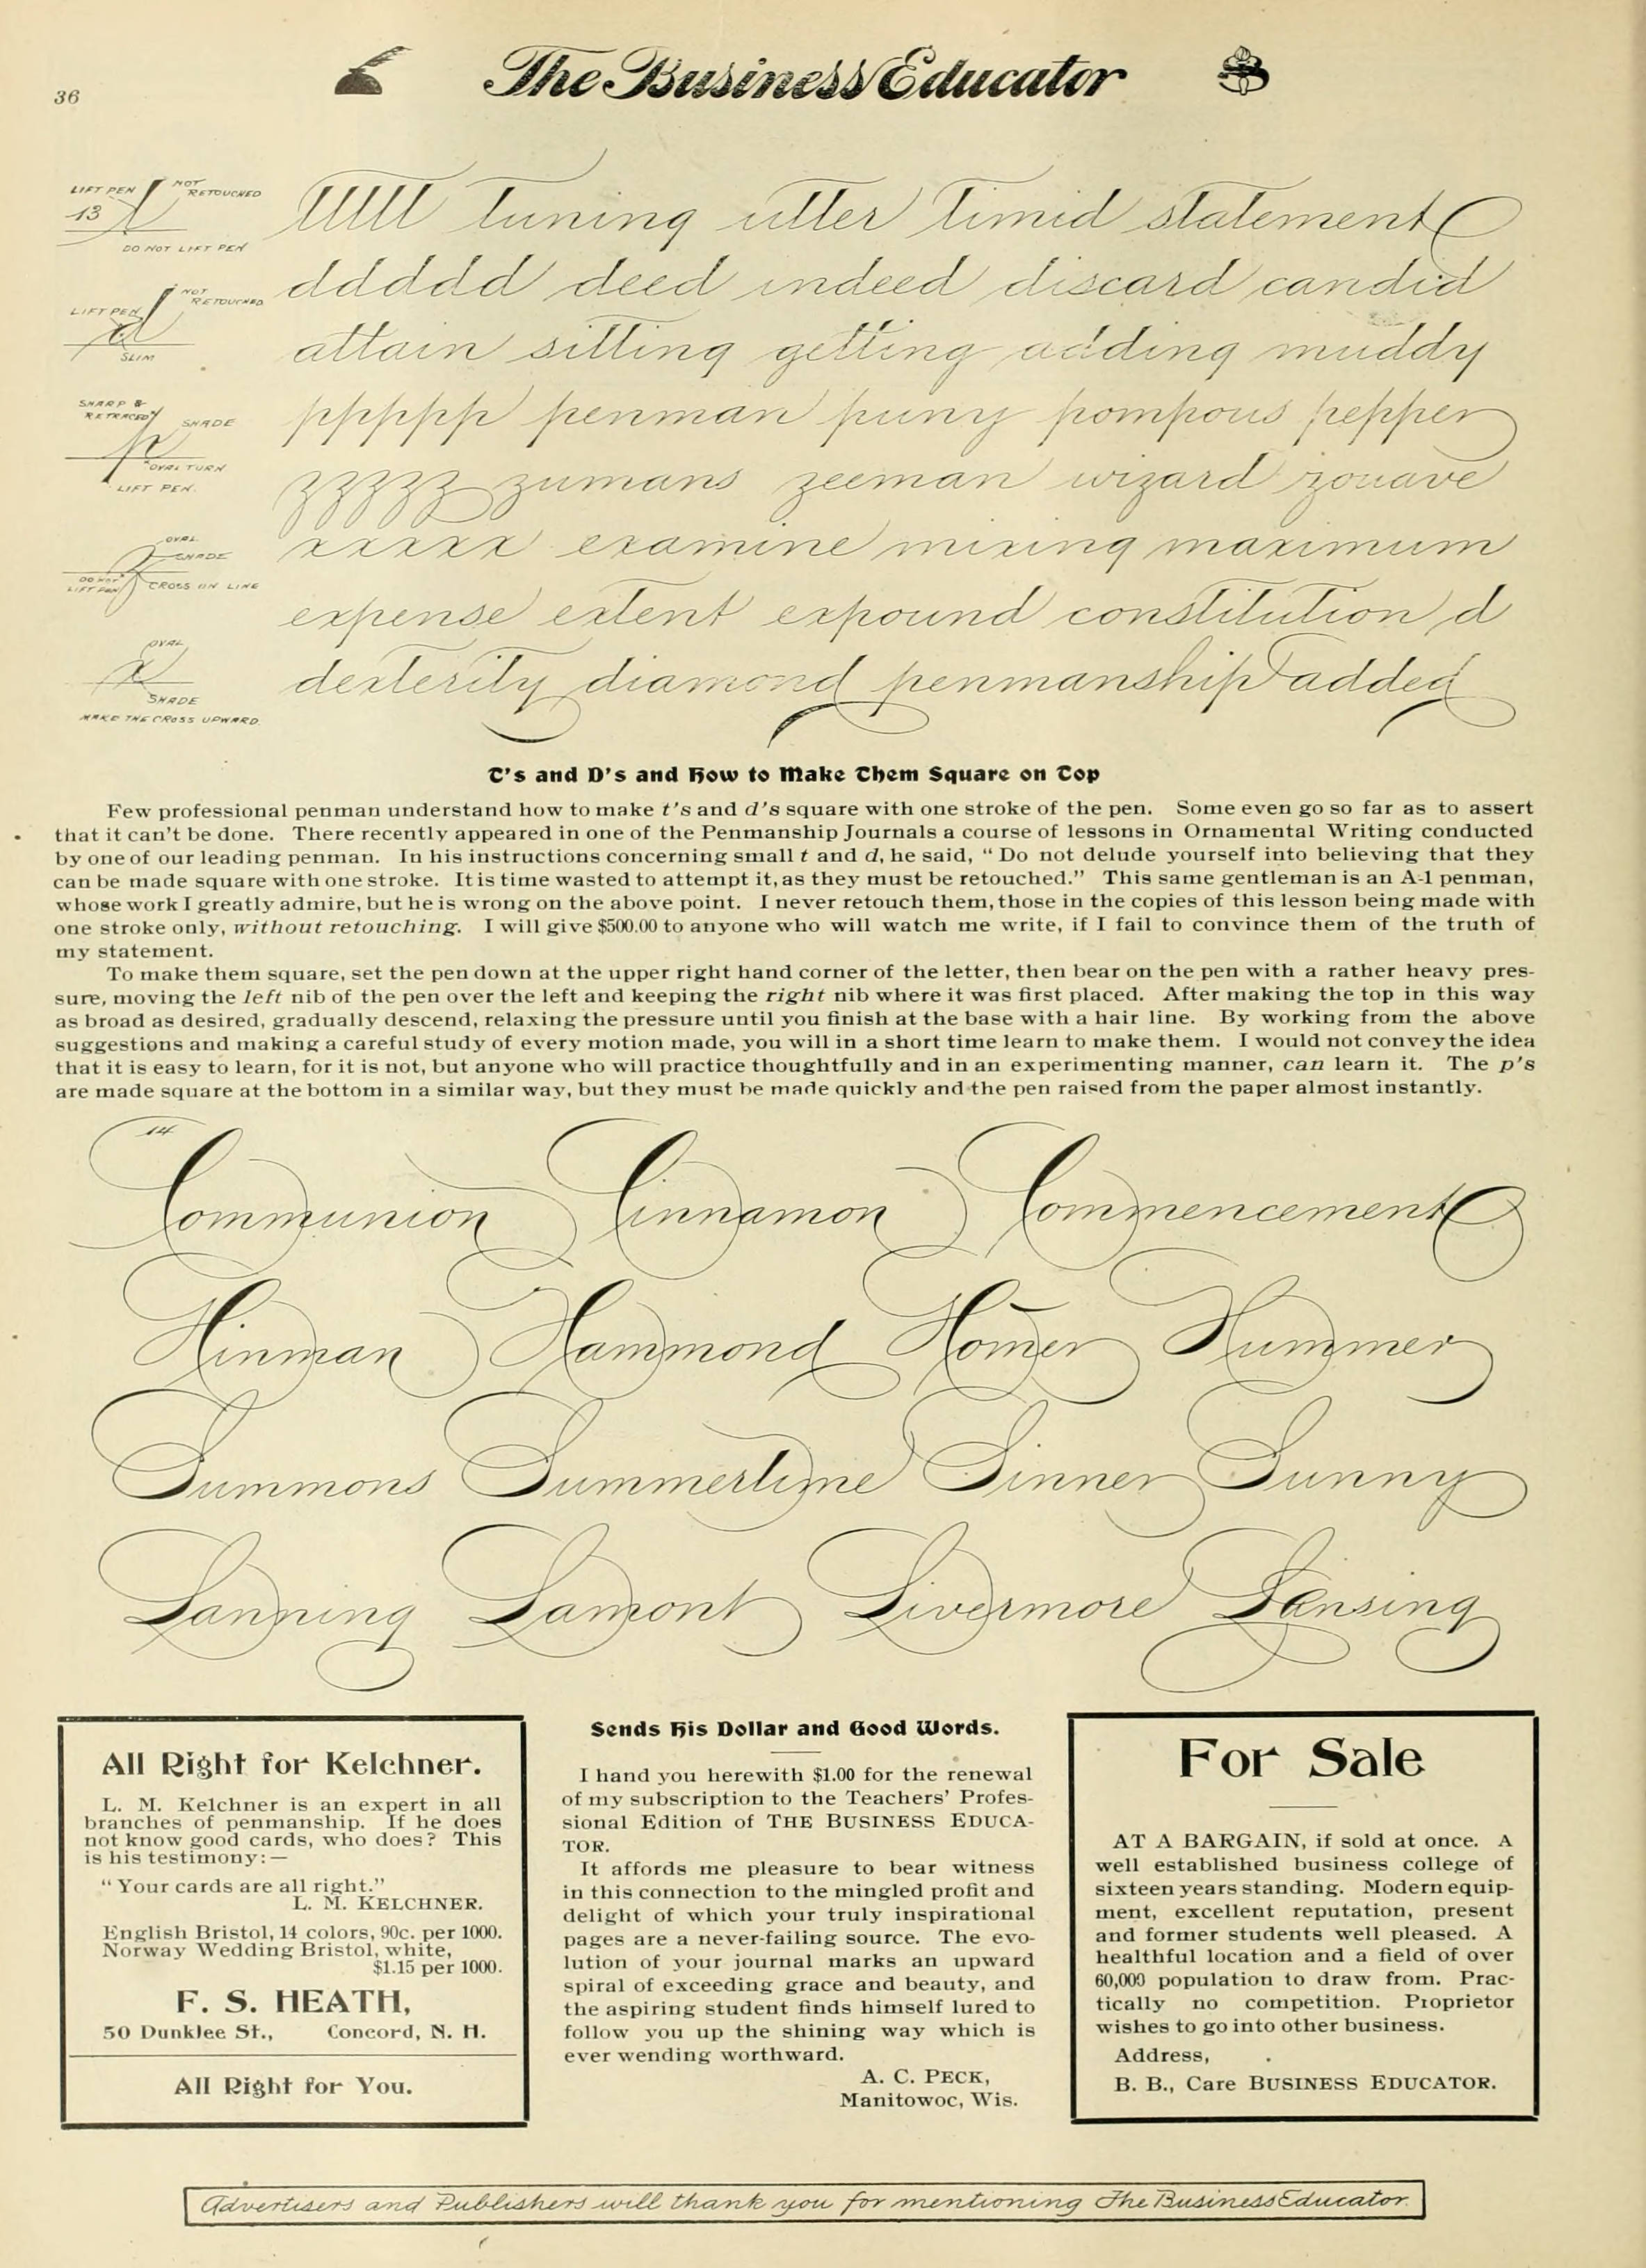 36
The Business Educator
LIFT PEN NOT RETOUCHED
13
DO NOT LIFT PEN
ttttt tuning utter timid statement
LIFT PEN NOT RETOUCHED
SLIM
dddddd deed indeed discard candid
attain sitting getting adding muddy
SHARP & RETRACED SHADE
OVAL TURN
LIFT PEN.
pppppp penman puny pompous pepper
zzzzz zumans zeeman wizard zouave
OVAL
SHADE
DO NOT LIFT PEN CROSS ON LINE
xxxxx examine mixing maximum
expense extent expound constitution d
OVAL
SHADE
MAKE THE CROSS UPWARD.
dexterity diamond penmanship added
T's and D's and How to Make Them Square on Top
Few professional penman understand how to make t's and d's square with one stroke of the pen. Some even go so far as to assert
that it can't be done. There recently appeared in one of the Penmanship Journals a course of lessons in Ornamental Writing conducted
by one of our leading penman. In his instructions concerning small t and d, he said, "Do not delude yourself into believing that they
can be made square with one stroke. It is time wasted to attempt it, as they must be retouched." This same gentleman is an A-1 penman,
whose work I greatly admire, but he is wrong on the above point. I never retouch them, those in the copies of this lesson being made with
one stroke only, without retouching. I will give $500.00 to anyone who will watch me write, if I fail to convince them of the truth of
my statement.
To make them square, set the pen down at the upper right hand corner of the letter, then bear on the pen with a rather heavy pres-
sure, moving the left nib of the pen over the left and keeping the right nib where it was first placed. After making the top in this way
as broad as desired, gradually descend, relaxing the pressure until you finish at the base with a hair line. By working from the above
suggestions and making a careful study of every motion made, you will in a short time learn to make them. I would not convey the idea
that it is easy to learn, for it is not, but anyone who will practice thoughtfully and in an experimenting manner, can learn it. The p's
are made square at the bottom in a similar way, but they must be made quickly and the pen raised from the paper almost instantly.
14
Communion Cinnamon Commencement
Hinman Hammond Homer Hummer
Summons Summertime Sinner Sunny
Lanning Lamont Livermore Lansing
All Right for Kelchner.
L. M. Kelchner is an expert in all
branches of penmanship. If he does
not know good cards, who does? This
is his testimony:—
"Your cards are all right."
L. M. KELCHNER.
English Bristol, 14 colors, 90c. per 1000.
Norway Wedding Bristol, white,
$1.15 per 1000.
F. S. HEATH,
50 Dunklee St., Concord, N. H.
All Right for You.
Sends His Dollar and Good Words.
I hand you herewith $1.00 for the renewal
of my subscription to the Teachers' Profes-
sional Edition of THE BUSINESS EDUCA-
TOR.
It affords me pleasure to bear witness
in this connection to the mingled profit and
delight of which your truly inspirational
pages are a never-failing source. The evo-
lution of your journal marks an upward
spiral of exceeding grace and beauty, and
the aspiring student finds himself lured to
follow you up the shining way which is
ever wending worthward.
A. C. PECK,
Manitowoc, Wis.
For Sale
AT A BARGAIN, if sold at once. A
well established business college of
sixteen years standing. Modern equip-
ment, excellent reputation, present
and former students well pleased. A
healthful location and a field of over
60,000 population to draw from. Prac-
tically no competition. Proprietor
wishes to go into other business.
Address,
B. B., Care BUSINESS EDUCATOR.
Advertisers and Publishers will thank you for mentioning The Business Educator.